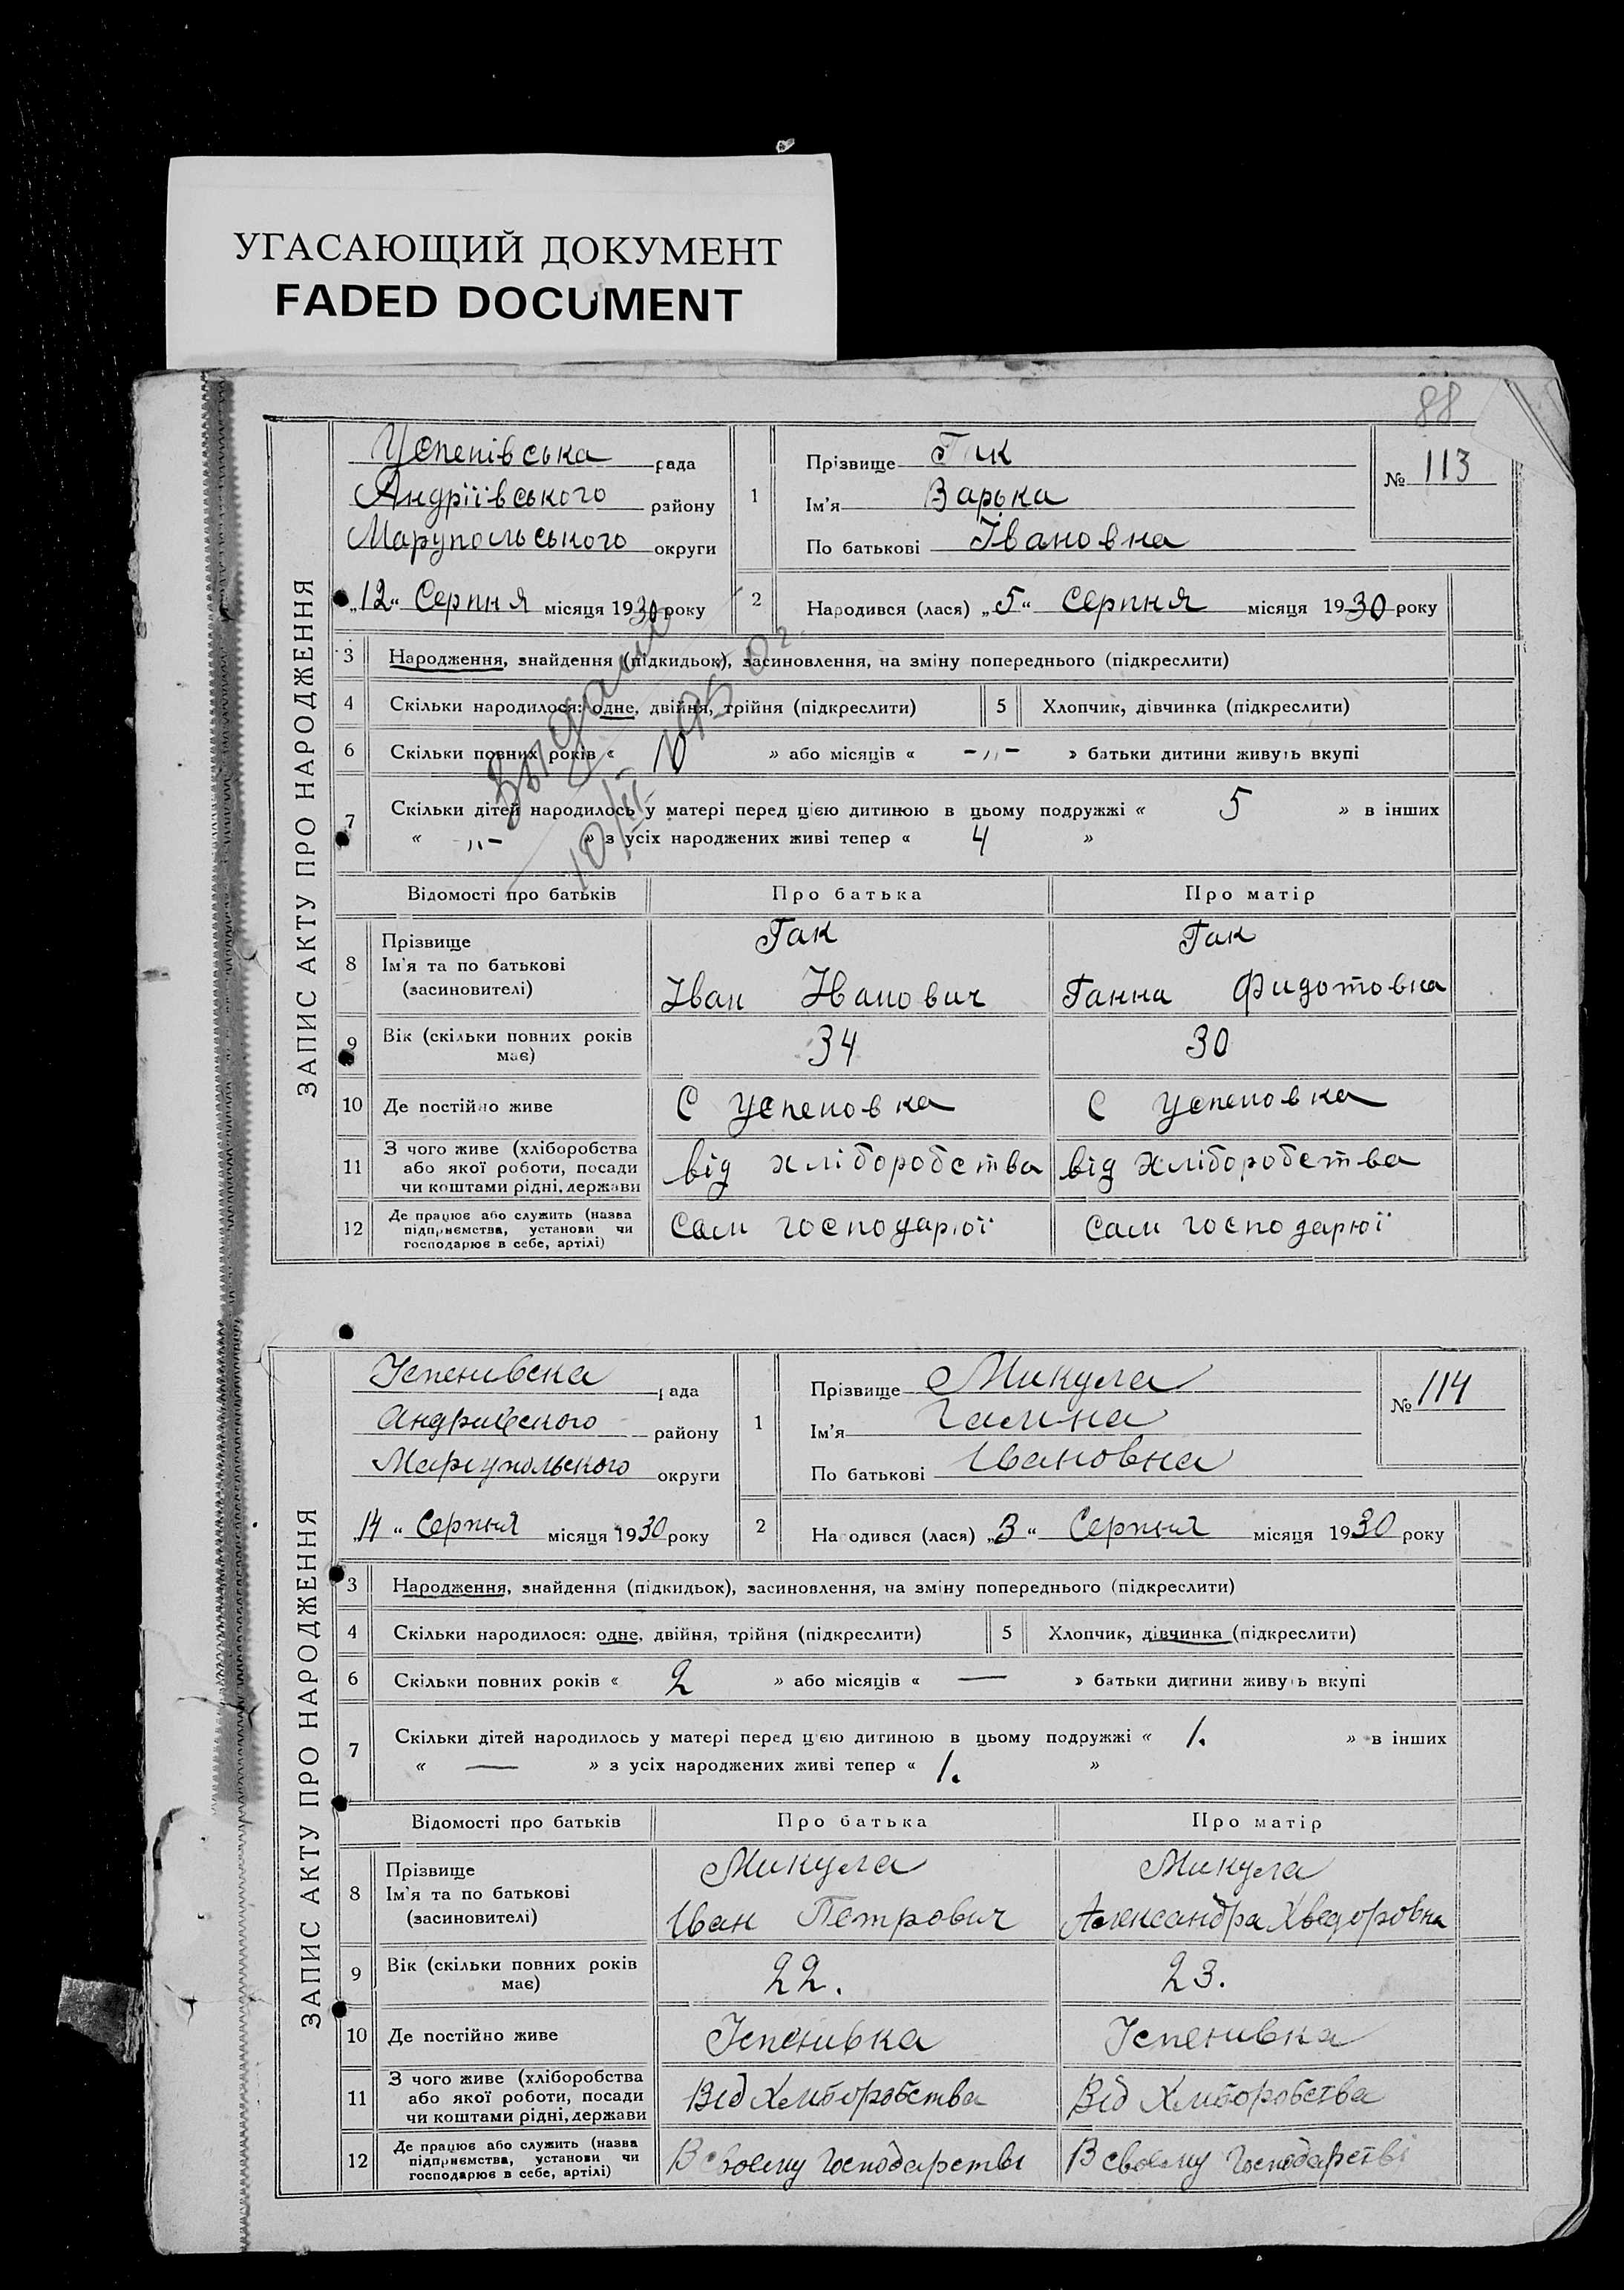 УГАСАЮЩИЙ ДОКУМЕНТ
FADED DOCUMENT
88
ЗАПИС АКТУ ПРО НАРОДЖЕННЯ
Успенівська рада
Андріївського району
Марупольського округи
„12“ Серпня місяця 1930 року
1 Прізвище Гак
Ім'я Варька
По батькові Івановна
№ 113
2 Народився (лася) „5“ Серпня місяця 1930 року
3 Народження, знайдення (підкидьок), засиновлення, на зміну попереднього (підкреслити)
4 Скільки народилося: одне, двійня, трійня (підкреслити) 5 Хлопчик, дівчинка (підкреслити)
6 Скільки повних років « 10 » або місяців « -„- » батьки дитини живуть вкупі
7 Скільки дітей народилось у матері перед цією дитиною в цьому подружжі « 5 » в інших
« „- » з усіх народжених живі тепер « 4 »
1950 г.
Відомості про батьків Про батька Про матір
8 Прізвище Гак Гак
Ім'я та по батькові
(засиновителі) Іван Иванович Ганна Фидотовна
9 Вік (скільки повних років має) 34 30
10 Де постійно живе С Успеновка С Успеновка
11 З чого живе (хліборобства
або якої роботи, посади
чи коштами рідні, держави від хліборобства від хліборобства
12 Де працює або служить (назва
підприємства, установи чи
господарює в себе, артілі) Сам господарюї Сам господарюї
ЗАПИС АКТУ ПРО НАРОДЖЕННЯ
Успенивска рада
Андриивского району
Мариупольского округи
„14“ Серпня місяця 1930 року
1 Прізвище Микула
Ім'я Галина
По батькові Ивановна
№ 114
2 Народився (лася) „3“ Серпня місяця 1930 року
3 Народження, знайдення (підкидьок), засиновлення, на зміну попереднього (підкреслити)
4 Скільки народилося: одне, двійня, трійня (підкреслити) 5 Хлопчик, дівчинка (підкреслити)
6 Скільки повних років « 2 » або місяців « — » батьки дитини живуть вкупі
7 Скільки дітей народилось у матері перед цією дитиною в цьому подружжі « 1. » в інших
« — » з усіх народжених живі тепер « 1. »
Відомості про батьків Про батька Про матір
8 Прізвище Микула Микула
Ім'я та по батькові
(засиновителі) Иван Петрович Александра Хведоровна
9 Вік (скільки повних років має) 22. 23.
10 Де постійно живе Успенивка Успенивка
11 З чого живе (хліборобства
або якої роботи, посади
чи коштами рідні, держави Від Хлиборобства Від Хлиборобства
12 Де працює або служить (назва
підприємства, установи чи
господарює в себе, артілі) В своему господарстві В своему господарстві